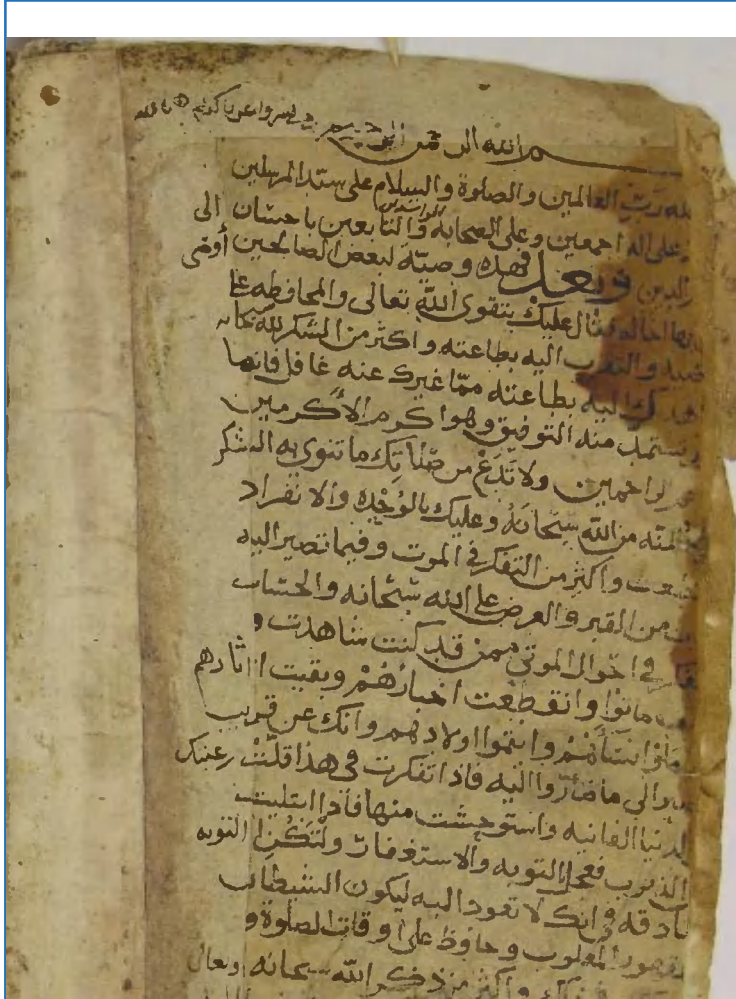 بسم الله الرحمن الرحيم
لله رب العالمين والصلوة والسلام على سيد المرسلين
وعلى اله اجمعين وعلى الصحابة الراشدين والتابعين باحسان الى
الدين وبعد فهذه وصية لبعض الصالحين أوصى
بها اخا له فقال عليك بتقوى الله تعالى والمحافظه على
والتقرب اليه بطاعته واكثر من الشكر لله سبحانه
اليه بطاعته مما غيرك عنه غافل فانها
وتستمد منه التوفيق وهو اكرم الأكرمين
الراحمين ولا تدع من صلاتك ما تنوي به الشكر
من الله سبحانه وعليك بالوحده والانفراد
واكثر من التفكر في الموت وفيما تصير اليه
من القبر والعرض على الله سبحانه والحساب
في احوال الموتى ممن قد كنت شاهدت و
ماتوا وانقطعت اخبارهم وبقيت اثارهم
نسآءهم وايتموا اولادهم وانك عن قريب
الى ما صاروا اليه فاذا تفكرت في هذا قلت رغبتك
الدنيا الفانيه واستوحشت منها فاذا ابتليت
الذنوب فعجل التوبه والاستغفار ولتكن التوبه
صادقه في انك لا تعود اليه ليكون الشيطان
المغلوب وحافظ على اوقات الصلوة و
واكثر من ذكر الله سبحانه وتعالى